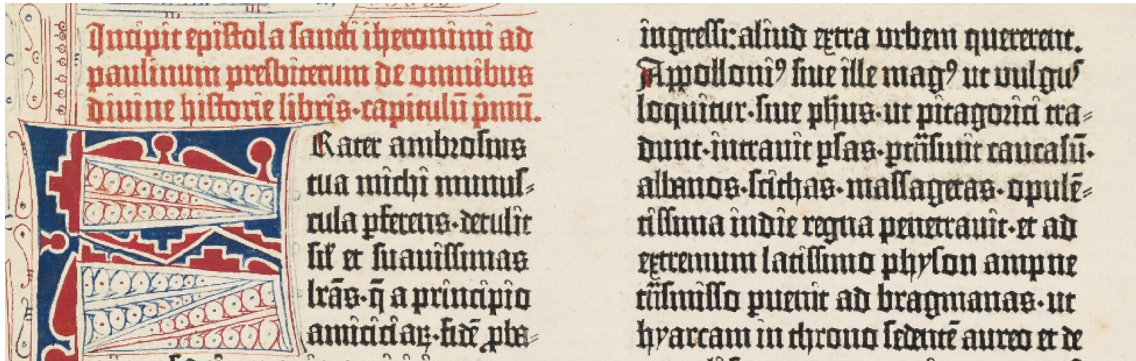 Incipit epistola sancti iheronimi ad
paulinum presbiterum de omnibus
divine historie libris·capitulū p̄mū.
Frater ambrosius
tua michi munus⸗
cula ꝑferens·detulit
sil̄ et suavissimas
lr̄as·q̄ a principio
amiciciaꝝ·fidē ꝓba⸗
ingressi:aliud extra urbem quererent.
Appolloniꝰ sive ille magꝰ ut vulgus
loquitur·sive ph̄us·ut pitagorici tra⸗
dunt·intravit ꝑsas·ꝑtrāsivit caucasū·
albanos·scithas·massagetas·opulē⸗
tissima indie regna penetravit·et ad
extremum latissimo physon ampne
trāsmisso ꝑvenit ad bragmanas·ut
hyarcam in throno sedentē aureo et de